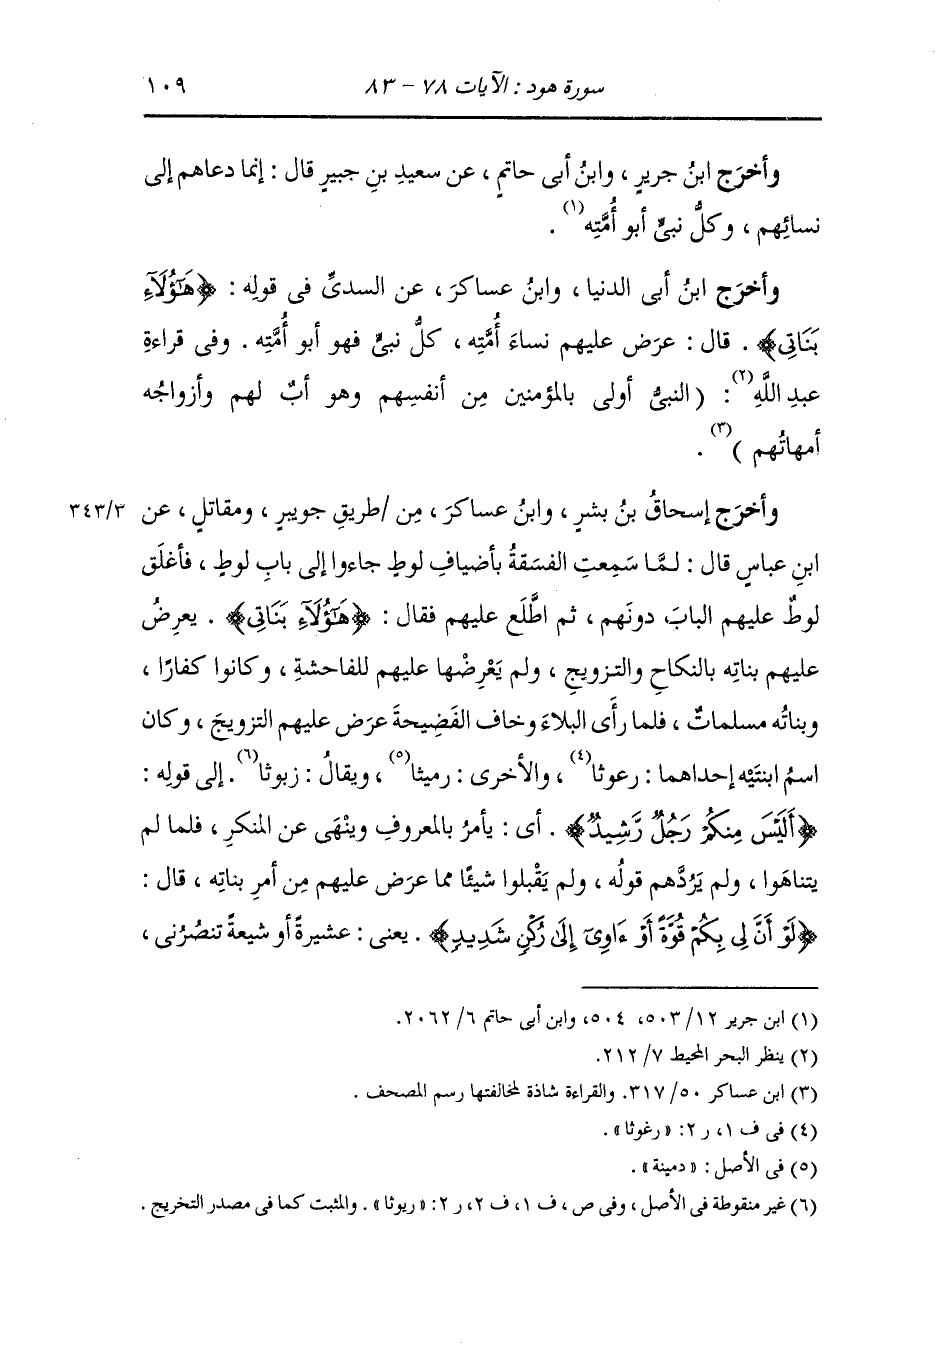 سورة هود : الآيات ٧٨ - ٨٣ ١٠٩
وأخرَج ابنُ جريرٍ ، وابنُ أبى حاتمٍ ، عن سعيدِ بنِ جبيرٍ قال : إنما دعاهم إلى
نسائِهم ، وكلُّ نبىٍّ أبو أُمَّتِه(١) .
وأخرَج ابنُ أبى الدنيا ، وابنُ عساكرَ ، عن السدىِّ فى قولِه : ﴿هَٰٓؤُلَآءِ
بَنَاتِى﴾ . قال : عرَض عليهم نساءَ أُمَّتِه ، كلُّ نبىٍّ فهو أبو أُمَّتِه . وفى قراءةِ
عبدِ اللَّهِ(٢) : ( النبىُّ أولى بالمؤمنين مِن أنفسِهم وهو أبٌ لهم وأزواجُه
أمهاتُهم )(٣) .
وأخرَج إسحاقُ بنُ بشرٍ ، وابنُ عساكرَ ، مِن /طريقِ جويبرٍ ، ومقاتلٍ ، عن ٣٤٣/٣
ابنِ عباسٍ قال : لـمَّا سَمِعتِ الفسَقةُ بأضيافِ لوطٍ جاءوا إلى بابِ لوطٍ ، فأغلَق
لوطٌ عليهم البابَ دونَهم ، ثم اطَّلَع عليهم فقال : ﴿هَٰٓؤُلَآءِ بَنَاتِى﴾ . يعرِضُ
عليهم بناتِه بالنكاحِ والتزويجِ ، ولم يَعْرِضْها عليهم للفاحشةِ ، وكانوا كفارًا ،
وبناتُه مسلماتٌ ، فلما رأَى البلاءَ وخاف الفَضِيحةَ عرَض عليهم التزويجَ ، وكان
اسمُ ابنتَيْه إحداهما : رعوثا(٤) ، والأخرى : رميثا(٥) ، ويقالُ : زبوثا(٦). إلى قولِه :
﴿أَلَيْسَ مِنكُمْ رَجُلٌ رَّشِيدٌ﴾ . أى : يأمرُ بالمعروفِ وينْهَى عن المنكرِ ، فلما لم
يتناهَوا ، ولم يَرُدَّهم قولُه ، ولم يَقْبلوا شيئًا مما عرَض عليهم مِن أمرِ بناتِه ، قال :
﴿لَوْ أَنَّ لِى بِكُمْ قُوَّةً أَوْ ءَاوِىٓ إِلَىٰ رُكْنٍ شَدِيدٍ﴾ . يعنى : عشيرةً أو شيعةً تنصُرُنى ،
(١) ابن جرير ١٢/ ٥٠٣، ٥٠٤، وابن أبى حاتم ٦/ ٢٠٦٢.
(٢) ينظر البحر المحيط ٧/ ٢١٢.
(٣) ابن عساكر ٥٠/ ٣١٧. والقراءة شاذة لمخالفتها رسم المصحف .
(٤) فى ف ١، ر ٢: «رغوثا» .
(٥) فى الأصل : «دمينة» .
(٦) غير منقوطة فى الأصل ، وفى ص ، ف ١، ف ٢، ر ٢: «ريوثا» . والمثبت كما فى مصدر التخريج .